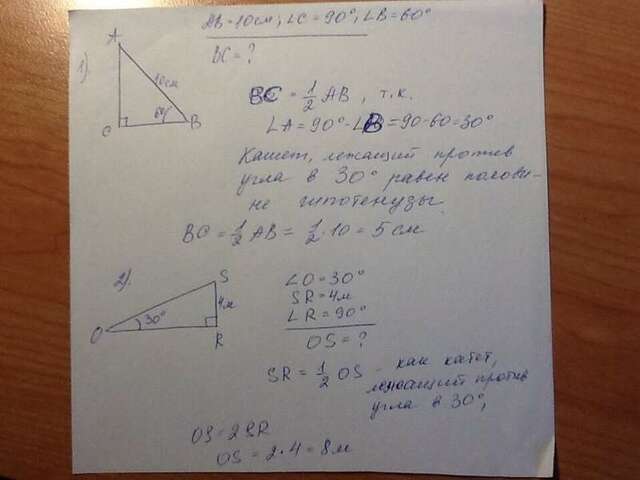 AB=10см, ∠C=90°, ∠B=60°
BC=?
1).
A
10см
60°
C
B
BC = 1/2 AB, т.к.
∠A=90°-∠B=90-60=30°
Катет, лежащий против
угла в 30° равен полови-
не гипотенузы.
BC = 1/2 AB = 1/2 · 10 = 5 см
2).
S
4м
30°
O
R
∠O=30°
SR=4м
∠R=90°
OS=?
SR = 1/2 OS - как катет,
лежащий против
угла в 30°,
OS=2SR
OS = 2·4=8м